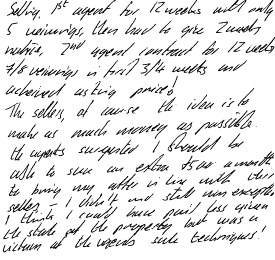 Selling, 1st agent for 12 weeks with only
5 viewings, then had to give 2 weeks
notice, 2nd agent contract for 12 weeks
7/8 viewings in first 3/4 weeks and
achieved asking price!
The sellers, of course the idea is to
make as much money as possible.
the agents suggested I should be
able to save an extra £500 a month
to bring my offer in line with their
seller - I didn't and still was accepted
I think I could have paid less given
the state of the property but was a
victim of the agents sale techniques!